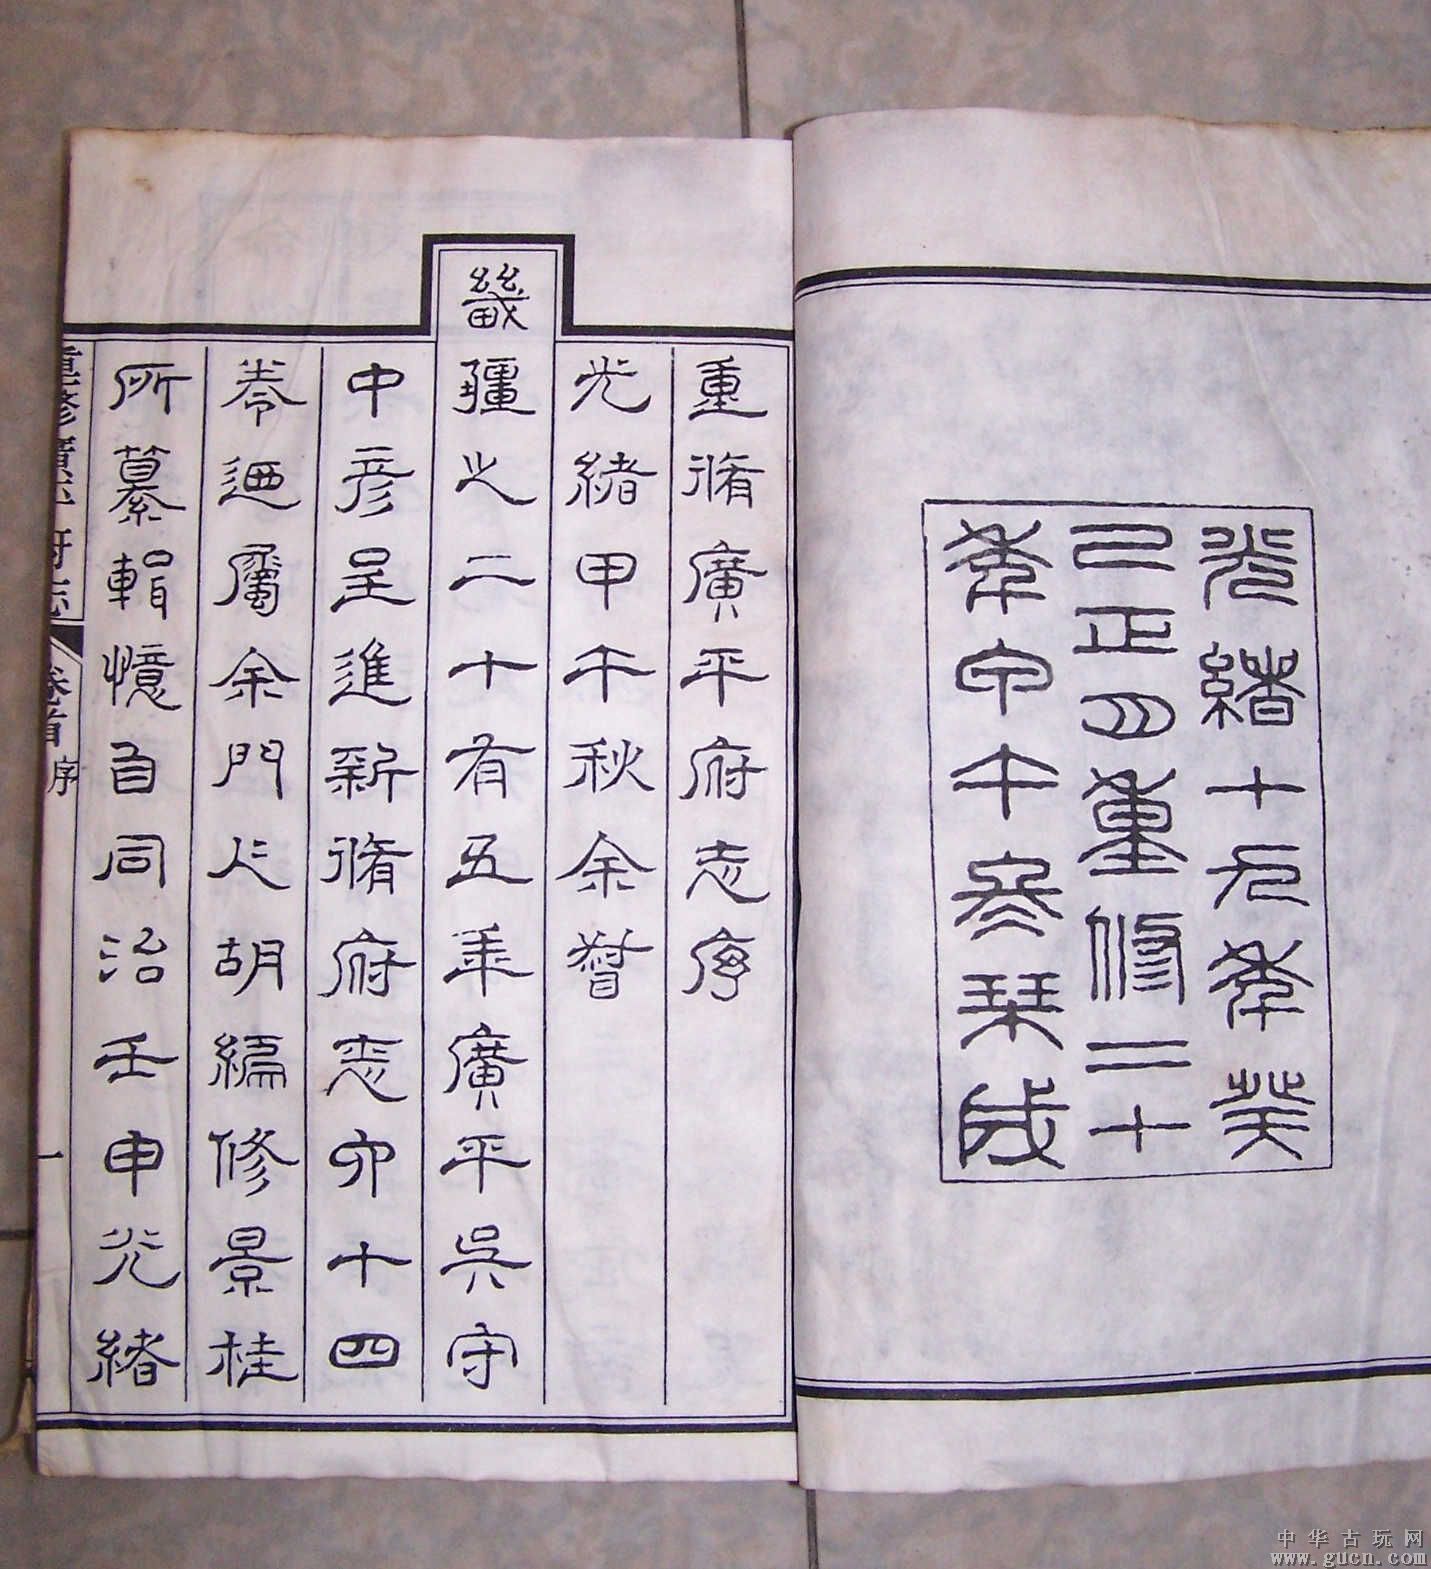 光緒十九年癸
巳正月重修二十
年甲午栞成
重脩廣平府志序
光緒甲午秋余督
畿疆之二十有五年廣平吳守
中彥呈進新脩府志六十四
卷迺屬余門人胡編修景桂
所纂輯憶自同治壬申光緒
重修廣平府志 卷首 序 一
中华古玩网
www.gucn.com